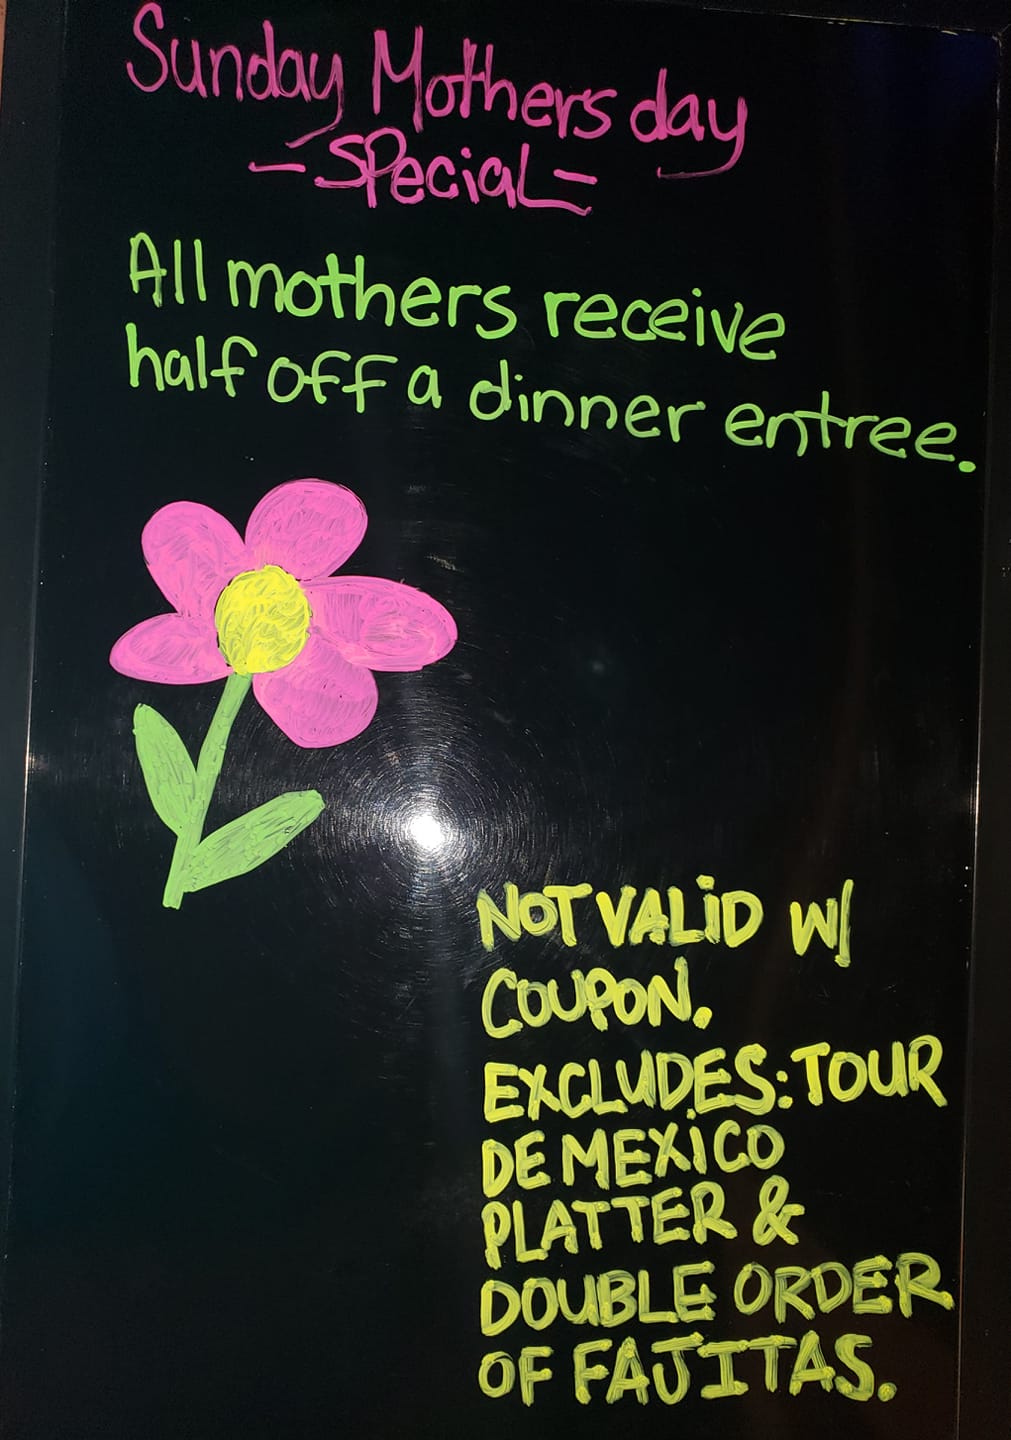 Sunday Mothers day
- SPeciaL -
All mothers receive
half off a dinner entree.
NOT VALiD W/
COUPON.
EXCLUDES: TOUR
DE MEXiCO
PLATTER &
DOUBLE ORDER
OF FAJITAS.